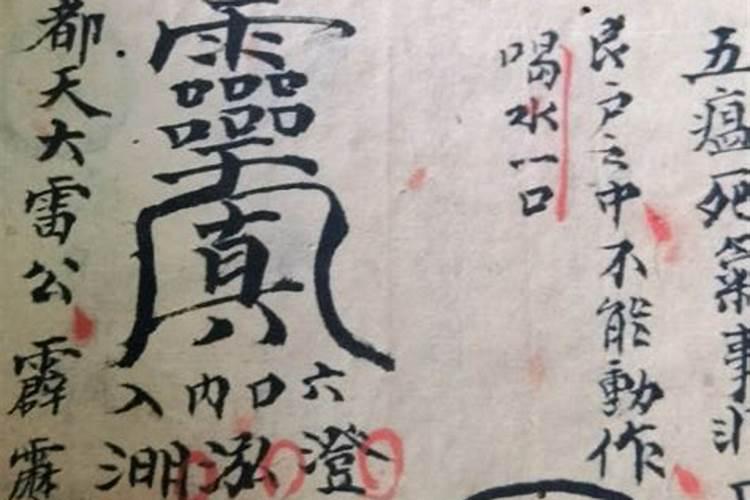 五瘟死氣事非
艮戶之中不能動作
喝水一口
真
六口內入
澄泓
都天大雷公霹靂